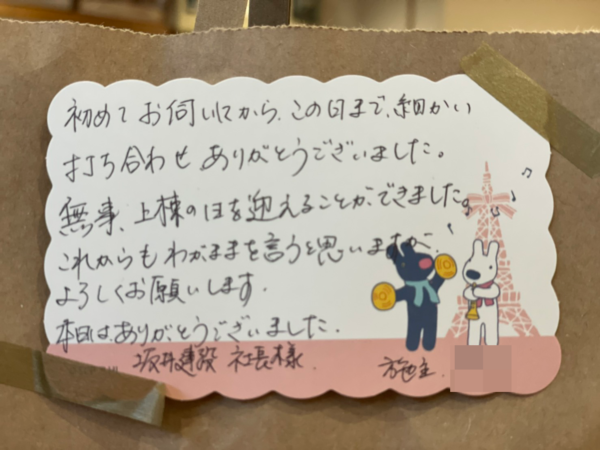 初めてお伺いしてから、この日まで、細かい
打ち合わせありがとうございました。
無事、上棟の日を迎えることができました。
これからもわがままを言うと思いますが、
よろしくお願いします。
本日はありがとうございました。
坂井建設 社長様
施主